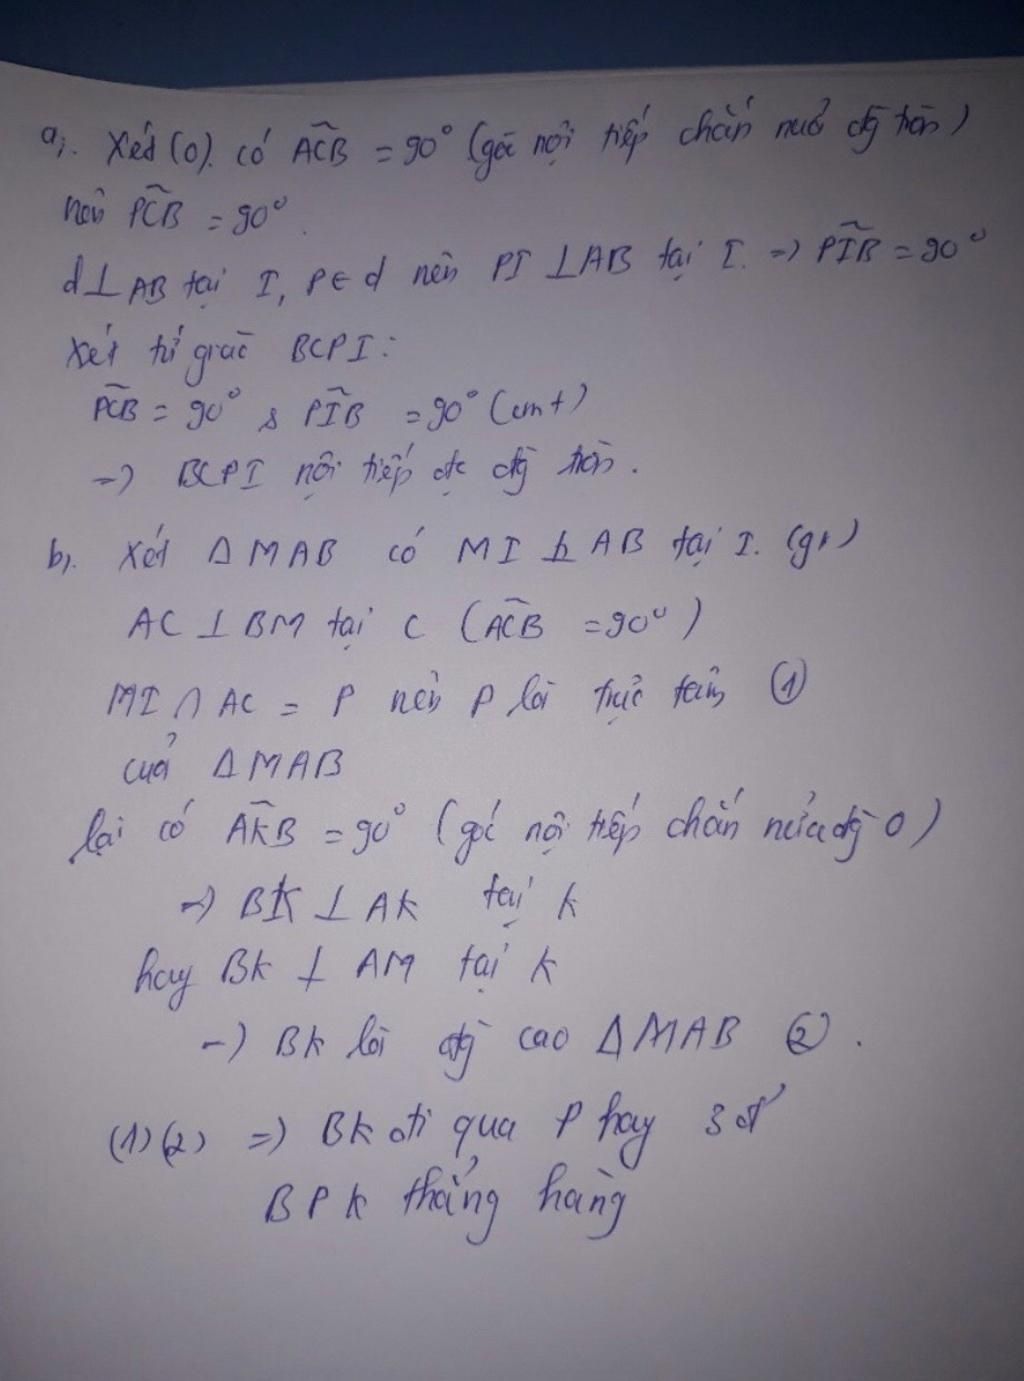 a). Xét (O). có ACB = 90° (góc nội tiếp chắn nửa đg tròn)
nên PCB = 90°.
d⊥AB tại I, P∈d nên PI ⊥AB tại I. => PIB = 90°
Xét tứ giác BCPI:
PCB = 90° & PIB = 90° (cmt)
=> BCPI nội tiếp đc đg tròn.
b). Xét ΔMAB có MI ⊥ AB tại I. (gt)
AC ⊥ BM tại C (ACB = 90°)
MI ∩ AC = P nên P là trực tâm ①
của ΔMAB
lại có AKB = 90° (góc nội tiếp chắn nửa đg O)
=> BK ⊥ AK tại K
hay BK ⊥ AM tại K
=> BK là đg cao ΔMAB ②.
(1)(2) => BK đi qua P hay 3 đ'
B P K thẳng hàng